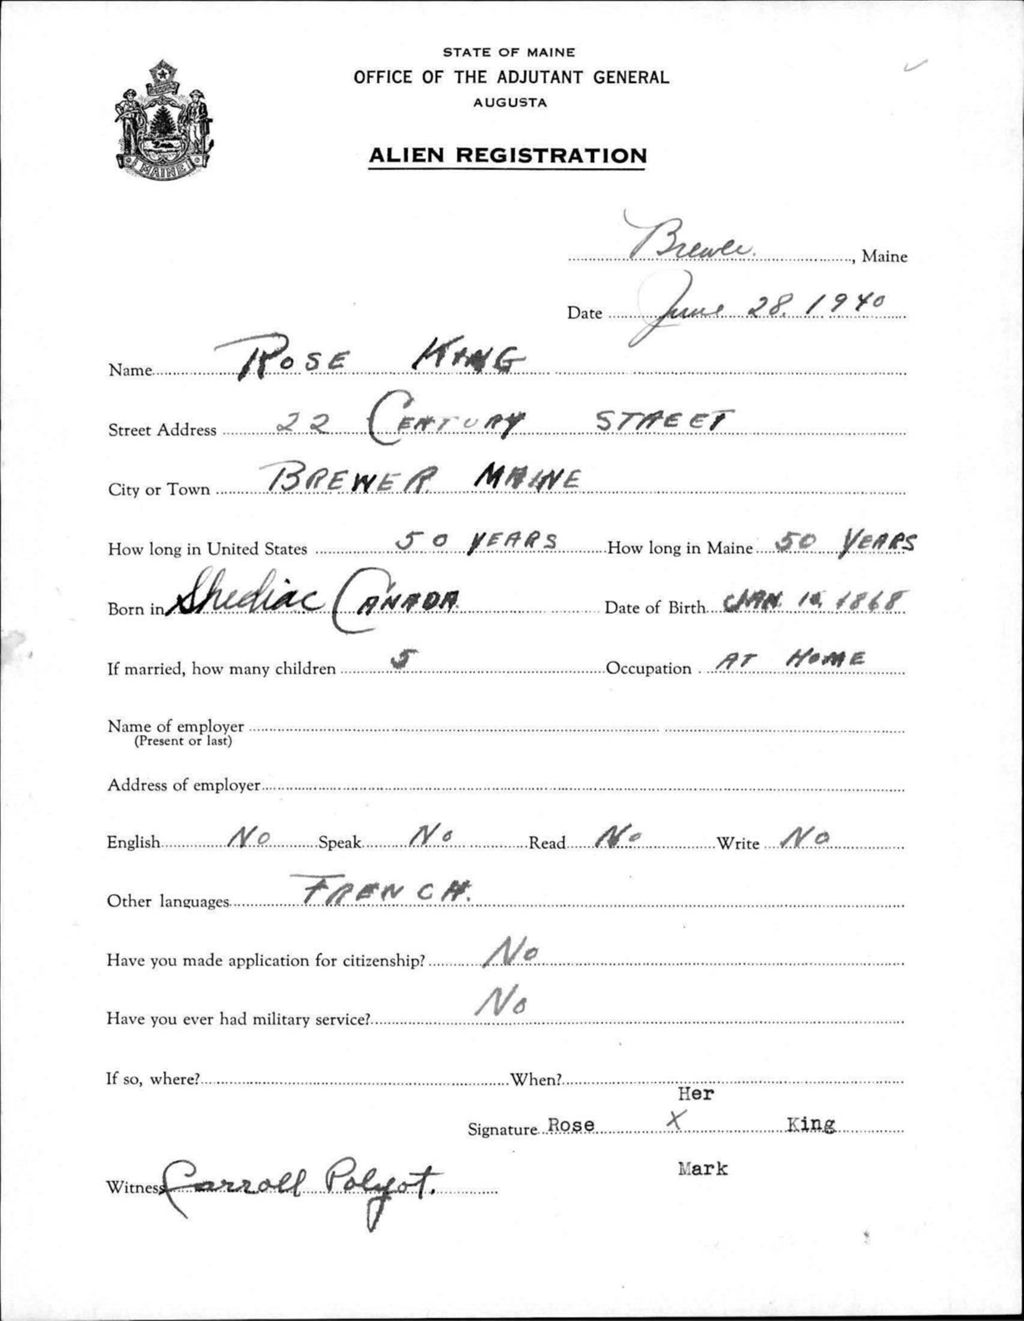 STATE OF MAINE
OFFICE OF THE ADJUTANT GENERAL
AUGUSTA
ALIEN REGISTRATION
MAINE
Brewer, Maine
Date June 28, 1940
Name ROSE KING
Street Address 22 CENTURY STREET
City or Town BREWER MAINE
How long in United States 50 YEARS How long in Maine 50 YEARS
Born in Shediac CANADA Date of Birth JAN. 1868
If married, how many children 5 Occupation AT HOME
Name of employer
(Present or last)
Address of employer
English NO Speak NO Read NO Write NO
Other languages FRENCH.
Have you made application for citizenship? NO
Have you ever had military service? NO
If so, where? When?
Her
Signature Rose X King
Mark
Witness Carroll Polyot.